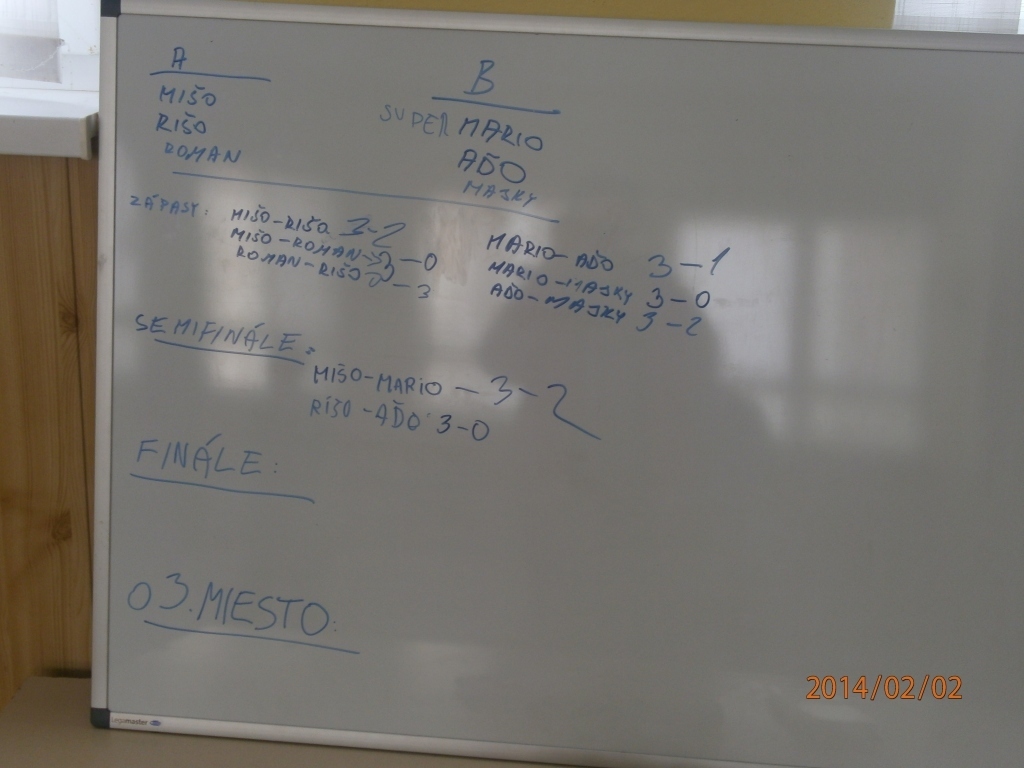 A
MIŠO
RIŠO
ROMAN
B
SUPER MARIO
AĎO
MAJKY
ZÁPASY:
MIŠO-RIŠO 3-2
MIŠO-ROMAN 3-0
ROMAN-RIŠO 2-3
MARIO-AĎO 3-1
MARIO-MAJKY 3-0
AĎO-MAJKY 3-2
SEMIFINÁLE:
MIŠO-MARIO - 3-2
RIŠO-AĎO: 3-0
FINÁLE:
O 3. MIESTO:
2014/02/02
Legamaster